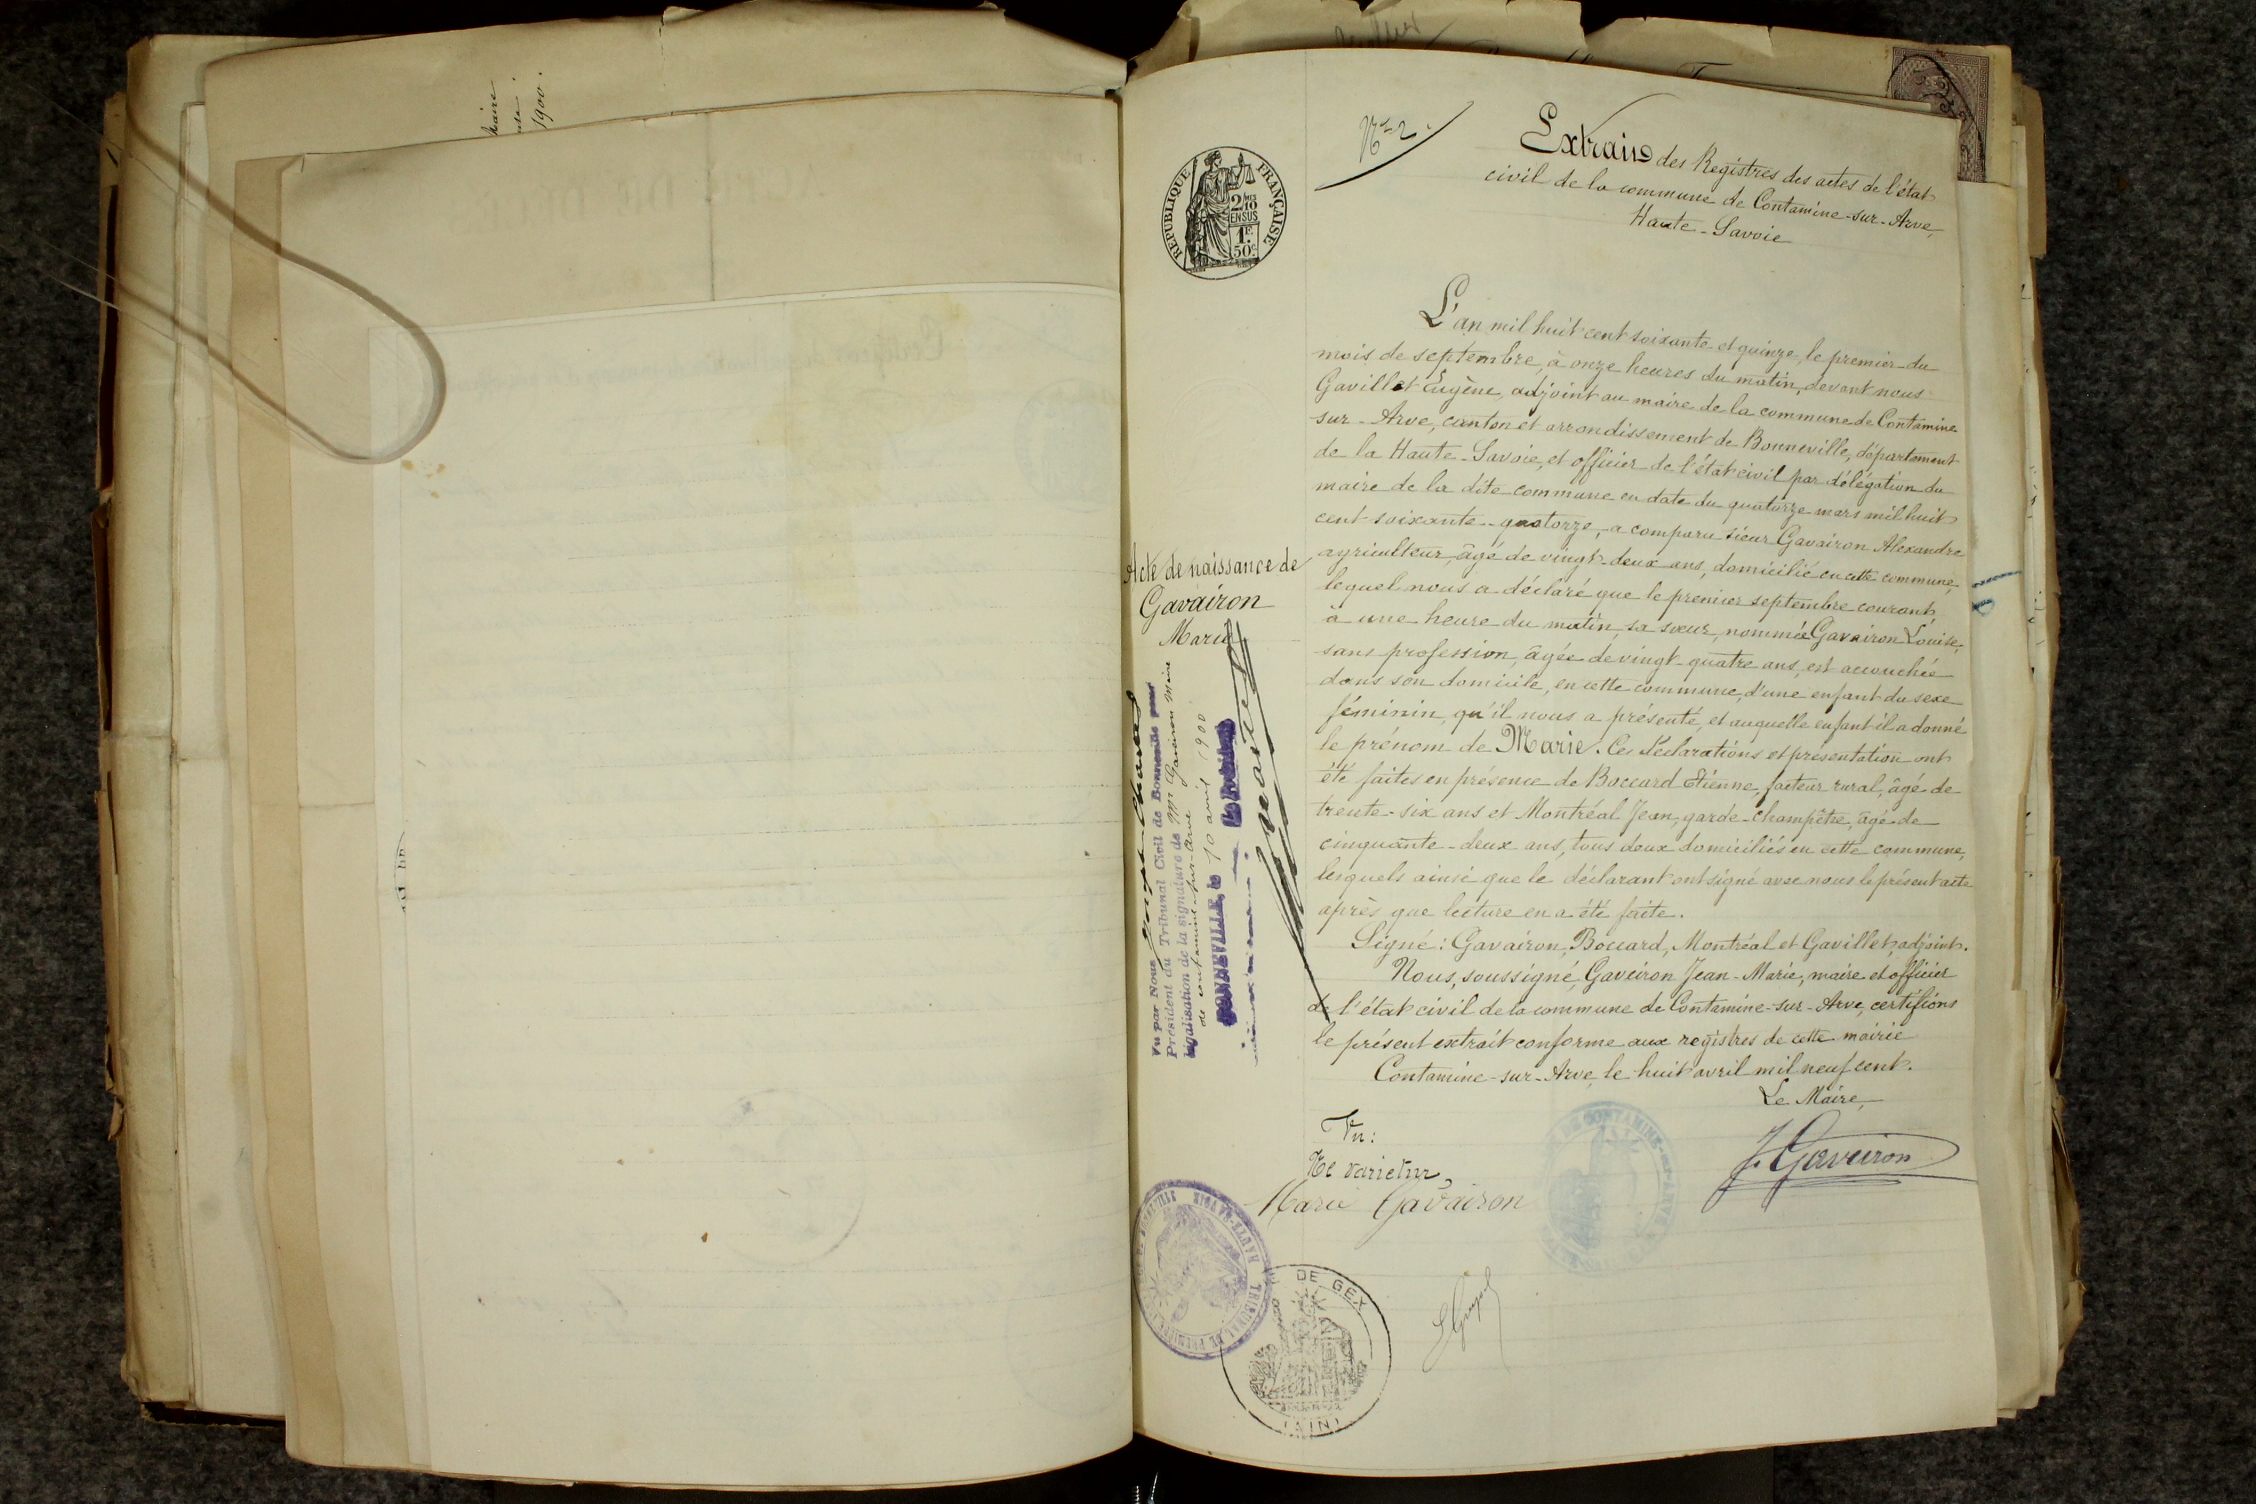 1900.
RÉPUBLIQUE FRANÇAISE
2/10
EN SUS
1F.
50c.
No 2.
Extrait des Registres des actes de l'état
civil de la commune de Contamine-sur-Arve,
Haute-Savoie
L'an mil huit cent soixante et quinze, le premier du
mois de septembre, à onze heures du matin, devant nous
Gavillet Eugène, adjoint au maire de la commune de Contamine
sur-Arve, canton et arrondissement de Bonneville, département
de la Haute-Savoie, et officier de l'état civil par délégation du
maire de la dite commune en date du quatorze mars mil huit
cent soixante-quatorze, a comparu sieur Gavairon Alexandre
agriculteur, âgé de vingt-deux ans, domicilié en cette commune,
lequel nous a déclaré que le premier septembre courant,
à une heure du matin, sa sœur, nommée Gavairon Louise,
sans profession, âgée de vingt-quatre ans, est accouchée
dans son domicile, en cette commune, d'une enfant du sexe
féminin, qu'il nous a présenté, et auquelle enfant il a donné
le prénom de Marie. Ces déclarations et présentation ont
été faites en présence de Boccard Etienne, facteur rural, âgé de
trente-six ans et Montréal Jean, garde-champêtre, âgé de
cinquante-deux ans, tous deux domiciliés en cette commune,
lesquels ainsi que le déclarant ont signé avec nous le présent acte
après que lecture en a été faite.
Signé: Gavairon, Boccard, Montréal et Gavillet, adjoint.
Nous, soussigné, Gaveiron Jean-Marie, maire et officier
de l'état civil de la commune de Contamine-sur-Arve, certifions
le présent extrait conforme aux registres de cette mairie
Contamine-sur-Arve, le huit avril mil neuf cent.
Le Maire,
J. Gaveiron
Acte de naissance de
Gavairon
Marie
Vu par Nous
Président du Tribunal Civil de Bonneville pour
légalisation de la signature de Mr Gaveiron Maire
de Contamine-sur-Arve
BONNEVILLE, le 10 avril 1900
Le Président
Vu:
Ne varietur
Marie Gavairon
DE CONTAMINE-sur-ARVE
TRIBUNAL DE PREMIÈRE
HAUTE-SAVOIE
DE GEX
(AIN)